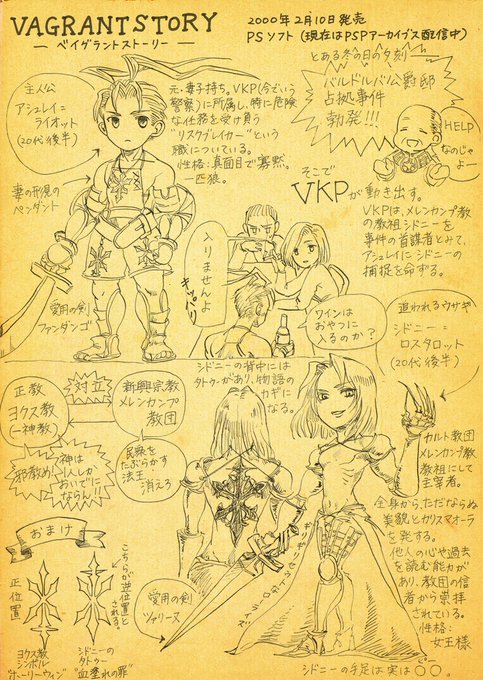 VAGRANT STORY
ーベイグラントストーリーー
2000年2月10日発売
PSソフト(現在はPSPアーカイブス配信中)
主人公
アシュレイ=
ライオット
(20代後半)
妻の形見の
ペンダント
愛用の剣
ファンダンゴ
元・妻子持ち。VKP(今でいう
警察)に所属し、特に危険
な任務を受け負う
"リスクブレイカー"という
職についている。
性格:真面目で寡黙。
一匹狼。
とある冬の日の夕刻──
バルドルバ公爵邸
占拠事件
勃発!!!
HELP
なのじゃ
よー
そこで
VKPが動き出す。
VKPは、メレンカンプ教
の教祖シドニーを
事件の首謀者とみて、
アシュレイにシドニーの
捕捉を命ずる。
入りませんよ
キッパリ
ワインは
おやつに
入るのか?
追われるウサギ
シドニー=
ロスタロット
(20代後半)
シドニーの背中には
タトゥーがあり、物語の
カギに
なる。
正教
ヨクス教
(一神教)
対立
新興宗教
メレンカンプ
教団
邪教め!
神は
1人しか
おいでに
ならん!!
民衆を
たぶらかす
法王
消えろ
カルト教団
メレンカンプ教
教祖にして
主宰者。
全身から、ただならぬ
美貌とカリスマオーラ
を発する。
他人の心や過去
を読む能力が
あり、教団の信
者から崇拝
されている。
性格:
女王様
おまけ
正位置
こちらが逆位置と
される。
ヨクス教
シンボル
"ホーリーウィン"
シドニーの
タトゥー
"血塗れの罪"
愛用の剣
ツァリーヌ
シドニーの手足は実は○○。